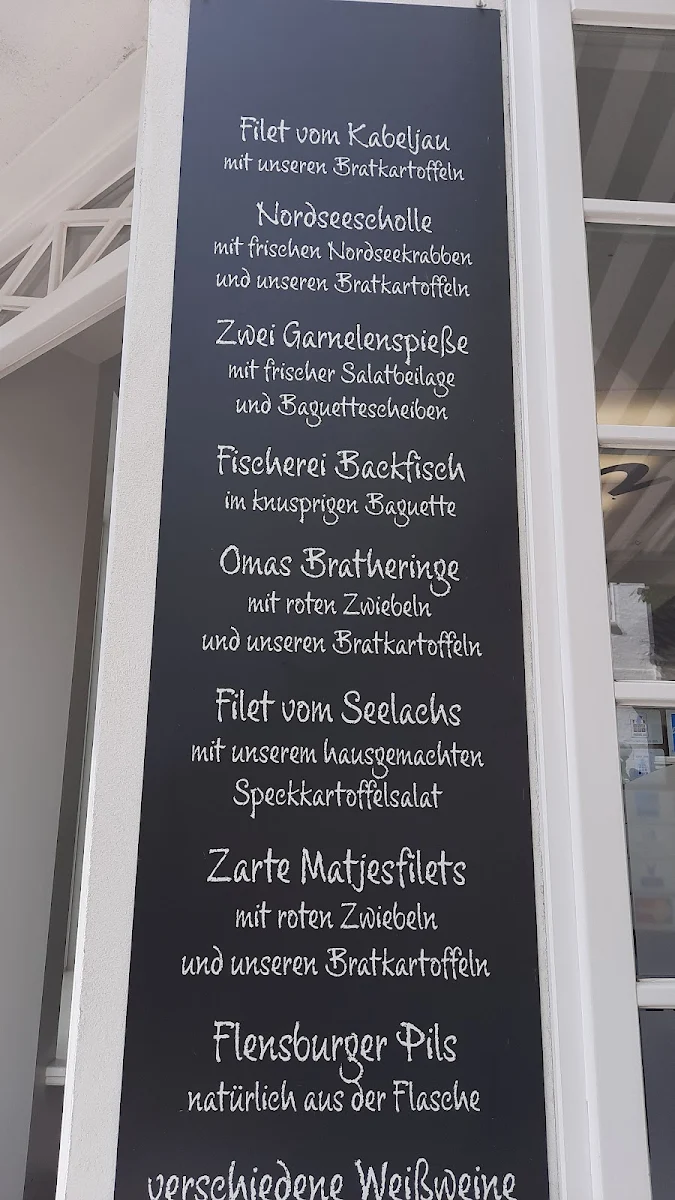 Filet vom Kabeljau
mit unseren Bratkartoffeln
Nordseescholle
mit frischen Nordseekrabben
und unseren Bratkartoffeln
Zwei Garnelenspieße
mit frischer Salatbeilage
und Baguettescheiben
Fischerei Backfisch
im knusprigen Baguette
Omas Bratheringe
mit roten Zwiebeln
und unseren Bratkartoffeln
Filet vom Seelachs
mit unserem hausgemachten
Speckkartoffelsalat
Zarte Matjesfilets
mit roten Zwiebeln
und unseren Bratkartoffeln
Flensburger Pils
natürlich aus der Flasche
verschiedene Weißweine
2